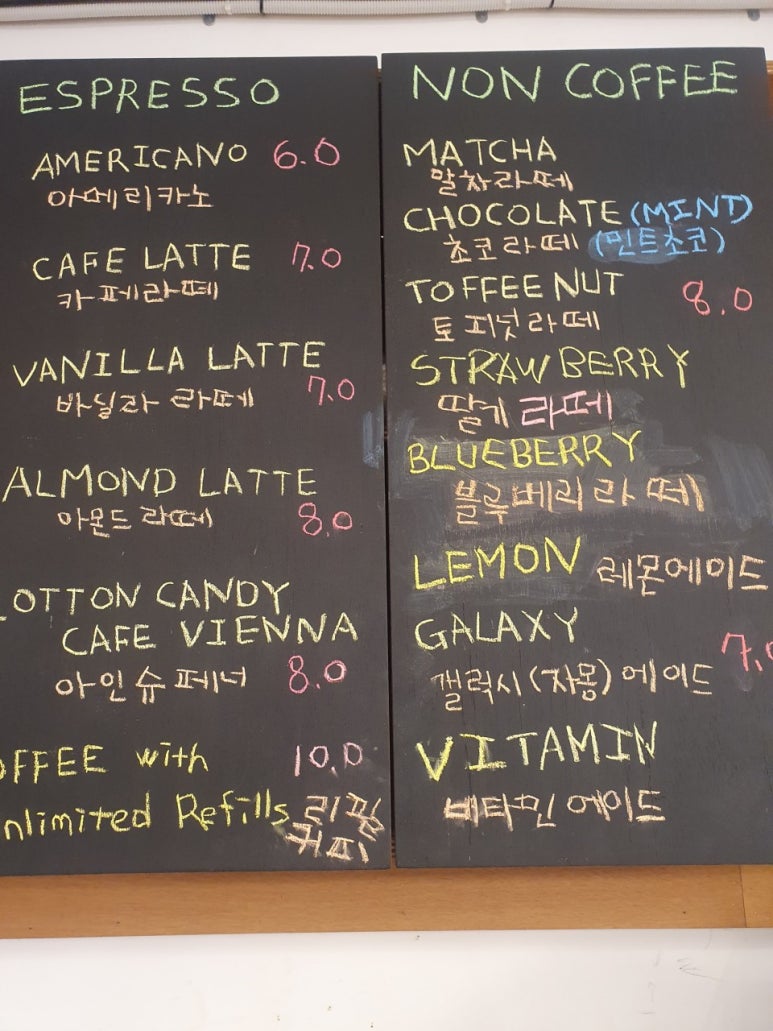 ESPRESSO
AMERICANO 6.0
아메리카노
CAFE LATTE 7.0
카페라떼
VANILLA LATTE
바닐라 라떼 7.0
ALMOND LATTE
아몬드 라떼 8.0
OTTON CANDY
CAFE VIENNA
아인슈페너 8.0
OFFEE with 10.0
nlimited Refills 리필
커피
NON COFFEE
MATCHA
말차라떼
CHOCOLATE (MINT)
초코라떼 (민트초코)
TOFFEE NUT 8.0
토피넛라떼
STRAWBERRY
딸기라떼
BLUEBERRY
블루베리라떼
LEMON 레몬에이드
GALAXY
갤럭시(자몽)에이드 7.0
VITAMIN
비타민에이드